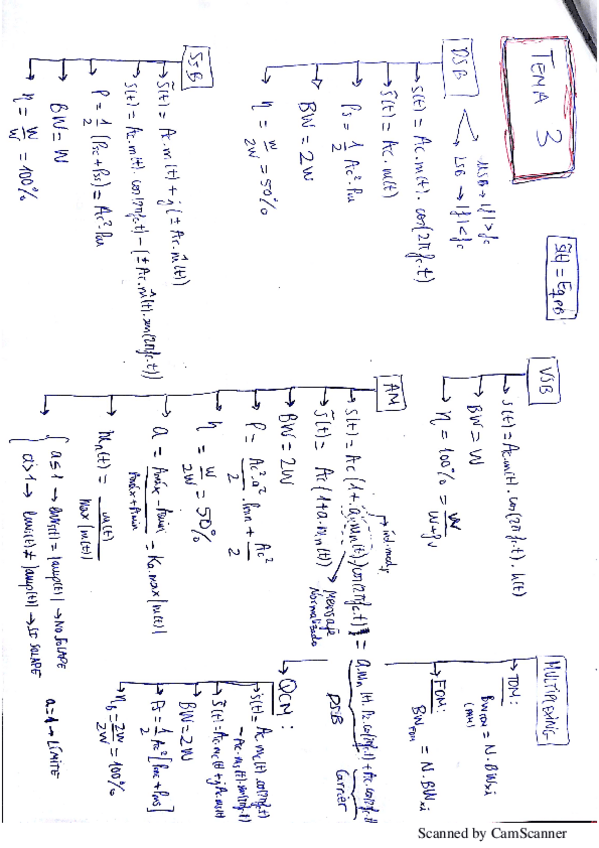 TEMA 3
S̃(t) = Eq. PB
DSB
USB → |f| > fc
LSB → |f| < fc
S(t) = Ac.m(t). cos(2πfc.t)
S̃(t) = Ac.m(t)
Ps = 1/2 Ac².Pm
BW = 2W
η = W/2W = 50%
SSB
S̃(t) = Ac.m(t) + j(± Ac.m̂(t))
S(t) = Ac.m(t). cos(2πfc.t) - (± Ac.m̂(t).sen(2πfc.t))
P = 1/2 (Pc + Ps) = Ac².Pm
BW = W
η = W/W = 100%
VSB
S(t) = Ac.m(t). cos(2πfc.t). h(t)
BW = W
η = 100% = W/W-fv
AM
ind. mod
S(t) = Ac(1+a.mn(t))cos(2πfc.t) = a.mn(t).Ac.cos(2πfc.t) + Ac.cos(2πfc.t)
Mensaje Normalizado
DSB
Carrier
S̃(t) = Ac(1+a.mn(t))
BW = 2W
P = Ac².a²/2 . Pmn + Ac²/2
η = W/2W = 50%
a = Amáx - Amin/Amáx + Amin = Ka.max|m(t)|
mn(t) = m(t)/max|m(t)|
a ≤ 1 → envs(t) = |amp(t)| → NO SOLAPE
a > 1 → envs(t) ≠ |amp(t)| → SI SOLAPE
a=1 → LÍMITE
MULTIPLEXING
TDM:
BWTDM = N.BWxi
FDM:
BWFDM = N.BWxi
QCM:
S(t) = Ac.mc(t).cos(2πfc.t)
- Ac.ms(t).sen(2πfc.t)
S̃(t) = Ac.mc(t) + j Ac.ms(t)
BW = 2W
Ps = 1/2 Ac² [Pmc + Pms]
ηB = 2W/2W = 100%
Scanned by CamScanner